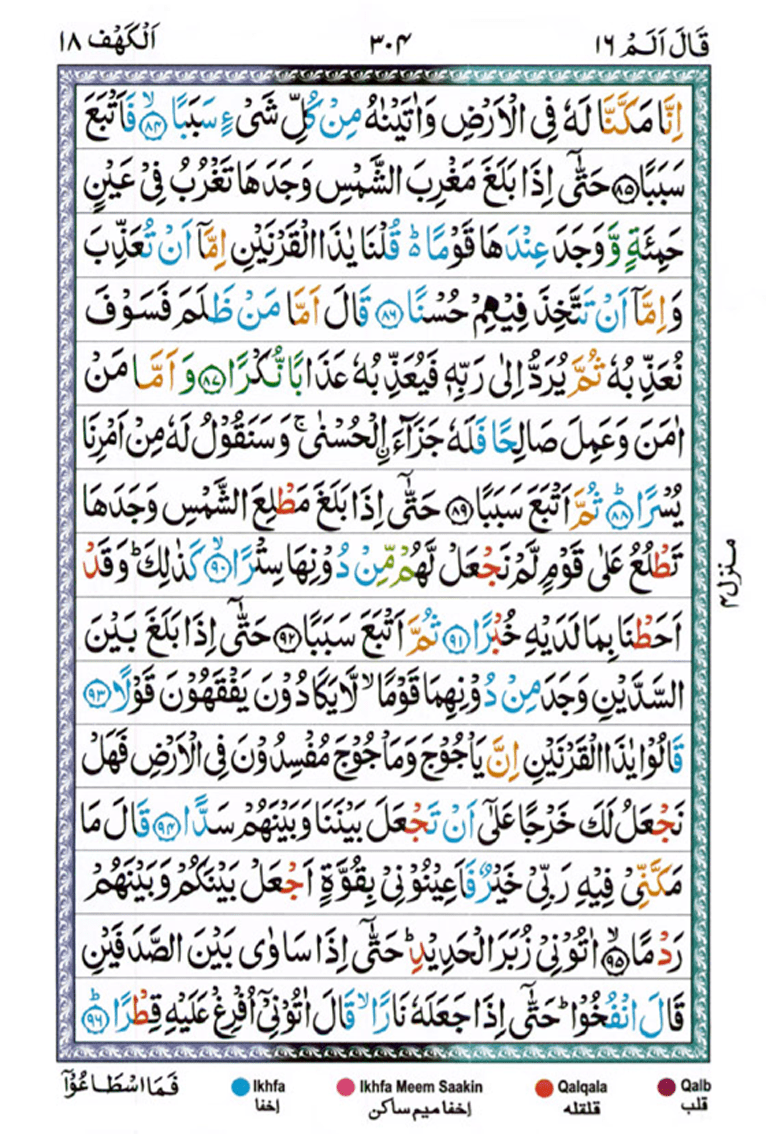 قَالَ اَلَمْ ١٦ ٣٠٤ اَلْكَهْف ١٨
اِنَّا مَكَّنَّا لَهٗ فِی الْاَرْضِ وَاٰتَیْنٰهُ مِنْ كُلِّ شَیْءٍ سَبَبًا ۙ‏﴿۸۴﴾ فَاَتْبَعَ
سَبَبًا ﴿۸۵﴾ حَتّٰۤی اِذَا بَلَغَ مَغْرِبَ الشَّمْسِ وَجَدَهَا تَغْرُبُ فِیْ عَیْنٍ
حَمِئَةٍ وَّ وَجَدَ عِنْدَهَا قَوْمًا ؕ۬ قُلْنَا یٰذَا الْقَرْنَیْنِ اِمَّاۤ اَنْ تُعَذِّبَ
وَاِمَّاۤ اَنْ تَتَّخِذَ فِیْهِمْ حُسْنًا ﴿۸۶﴾ قَالَ اَمَّا مَنْ ظَلَمَ فَسَوْفَ
نُعَذِّبُهٗ ثُمَّ یُرَدُّ اِلٰی رَبِّهٖ فَیُعَذِّبُهٗ عَذَابًا نُّكْرًا ﴿۸۷﴾ وَ اَمَّا مَنْ
اٰمَنَ وَعَمِلَ صَالِحًا فَلَهٗ جَزَآءَ ﹰالْحُسْنٰی ۚ وَسَنَقُوْلُ لَهٗ مِنْ اَمْرِنَا
یُسْرًا ؕ﴿۸۸﴾ ثُمَّ اَتْبَعَ سَبَبًا ﴿۸۹﴾ حَتّٰۤی اِذَا بَلَغَ مَطْلِعَ الشَّمْسِ وَجَدَهَا
تَطْلُعُ عَلٰی قَوْمٍ لَّمْ نَجْعَلْ لَّهُمْ مِّنْ دُوْنِهَا سِتْرًا ۙ﴿۹۰﴾ كَذٰلِكَ ؕ وَقَدْ
اَحَطْنَا بِمَا لَدَیْهِ خُبْرًا ﴿۹۱﴾ ثُمَّ اَتْبَعَ سَبَبًا ﴿۹۲﴾ حَتّٰۤی اِذَا بَلَغَ بَیْنَ
السَّدَّیْنِ وَجَدَ مِنْ دُوْنِهِمَا قَوْمًا ۙ لَّا یَكَادُوْنَ یَفْقَهُوْنَ قَوْلًا ﴿۹۳﴾
قَالُوْا یٰذَا الْقَرْنَیْنِ اِنَّ یَاْجُوْجَ وَمَاْجُوْجَ مُفْسِدُوْنَ فِی الْاَرْضِ فَهَلْ
نَجْعَلُ لَكَ خَرْجًا عَلٰۤی اَنْ تَجْعَلَ بَیْنَنَا وَبَیْنَهُمْ سَدًّا ﴿۹۴﴾ قَالَ مَا
مَكَّنِّیْ فِیْهِ رَبِّیْ خَیْرٌ فَاَعِیْنُوْنِیْ بِقُوَّةٍ اَجْعَلْ بَیْنَكُمْ وَبَیْنَهُمْ
رَدْمًا ۙ﴿۹۵﴾ اٰتُوْنِیْ زُبَرَ الْحَدِیْدِ ؕ حَتّٰۤی اِذَا سَاوٰی بَیْنَ الصَّدَفَیْنِ
قَالَ انْفُخُوْا ؕ حَتّٰۤی اِذَا جَعَلَهٗ نَارًا ۙ قَالَ اٰتُوْنِیْۤ اُفْرِغْ عَلَیْهِ قِطْرًا ؕ﴿۹۶﴾
منزل ۴
فَمَا اسْطَاعُوْۤا
Ikhfa Ikhfa Meem Saakin Qalqala Qalb
اخفا اخفا میم ساکن قلقله قلب